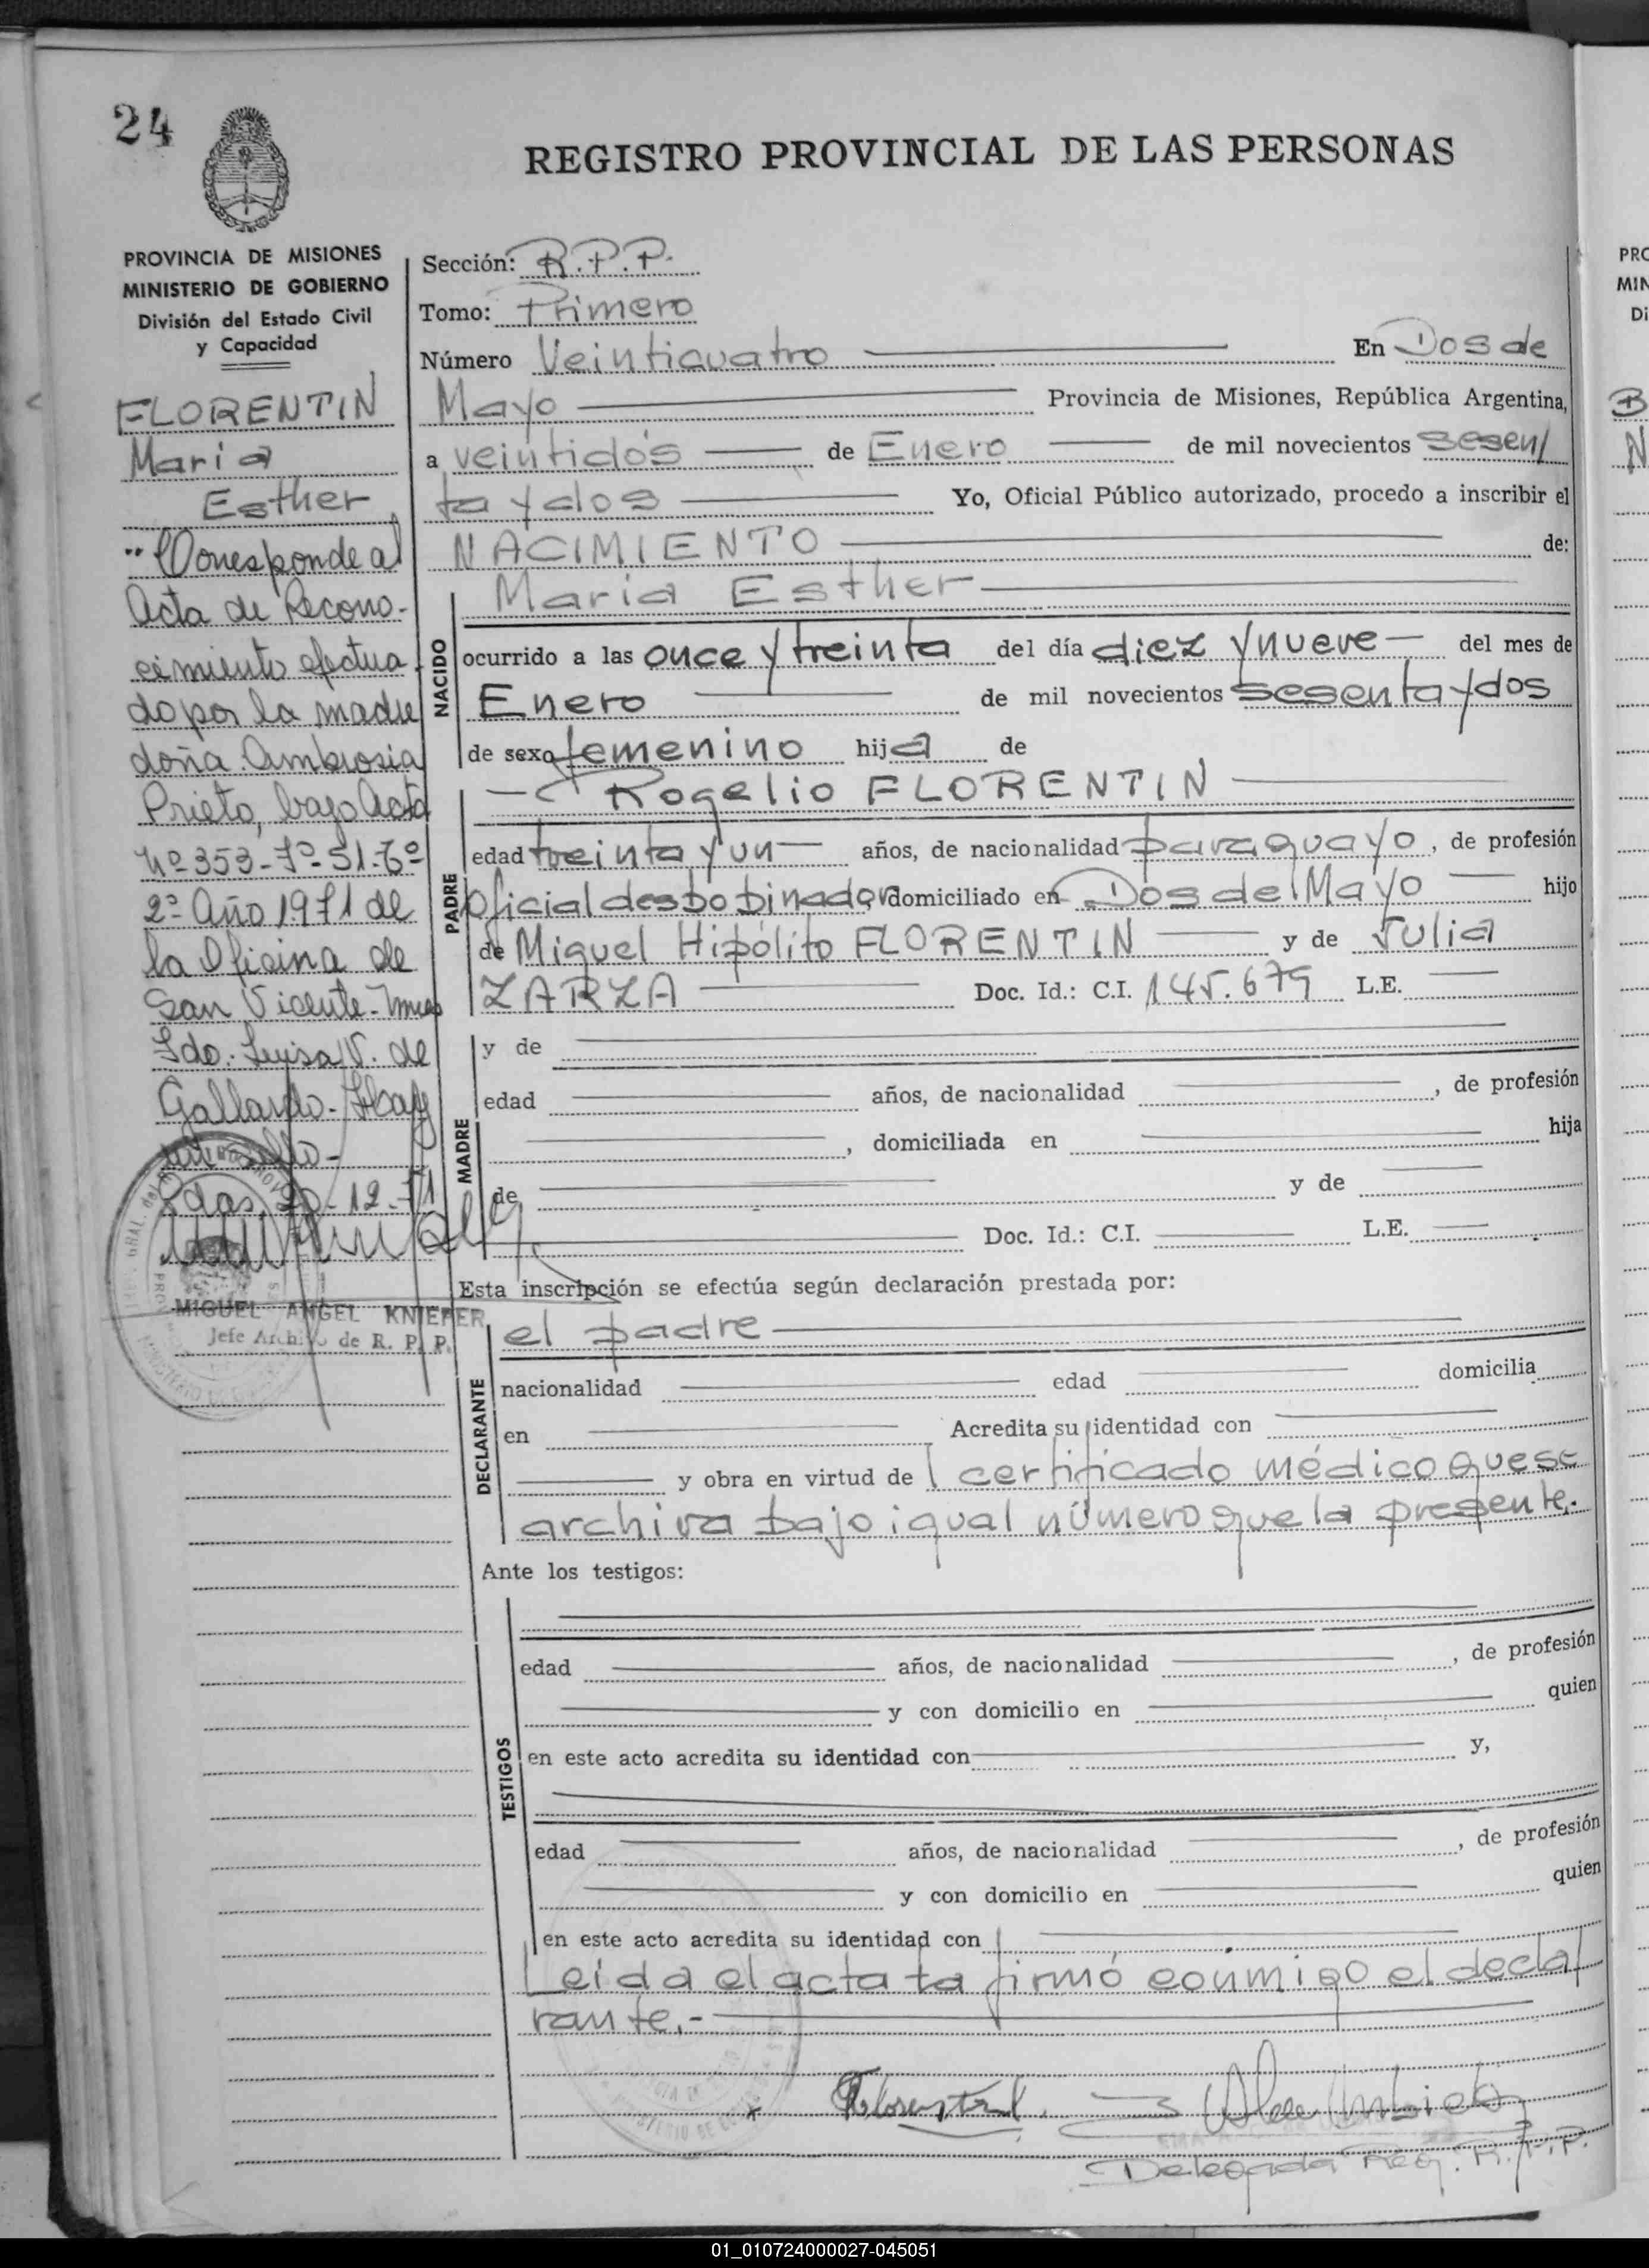 24
REGISTRO PROVINCIAL DE LAS PERSONAS
PROVINCIA DE MISIONES
MINISTERIO DE GOBIERNO
División del Estado Civil
y Capacidad
FLORENTIN
Maria
Esther
"Corresponde al
Acta de Recono-
cimiento efectua
do por la madre
doña Ambrosia
Prieto, bajo Acta
Nº 353-Tº-51-6º
2º Año 1971 de
la Oficina de
San Vicente-Mnes
Fdo. Luisa V. de
Gallardo-Hay
un sello-
Pdas, 20-12-71
MIGUEL ANGEL KNIEPER
Jefe Archivo de R. P. P.
Sección: R.P.P.
Tomo: Primero
Número Veinticuatro En Dos de
Mayo Provincia de Misiones, República Argentina,
a veintidós de Enero de mil novecientos sesen/
ta y dos Yo, Oficial Público autorizado, procedo a inscribir el
NACIMIENTO de:
Maria Esther
NACIDO
ocurrido a las once y treinta del día diez y nueve del mes de
Enero de mil novecientos sesenta y dos
de sexo femenino hija de
Rogelio FLORENTIN
PADRE
edad treinta y un años, de nacionalidad paraguayo, de profesión
oficial desbobinador domiciliado en Dos de Mayo hijo
de Miguel Hipólito FLORENTIN y de Julia
ZARZA Doc. Id.: C.I. 145.679 L.E.
MADRE
y de
edad años, de nacionalidad , de profesión
, domiciliada en hija
de y de
Doc. Id.: C.I. L.E.
Esta inscripción se efectúa según declaración prestada por:
el padre
DECLARANTE
nacionalidad edad domicilia
en Acredita su identidad con
y obra en virtud de certificado médico que se
archiva bajo igual número que la presente.-
Ante los testigos:
TESTIGOS
edad años, de nacionalidad , de profesión
y con domicilio en quien
en este acto acredita su identidad con y,
edad años, de nacionalidad , de profesión
y con domicilio en quien
en este acto acredita su identidad con
Leida el acta ta firmó conmigo el decla/
rante.-
Delegada Reg. R.P.P.
01_010724000027-045051